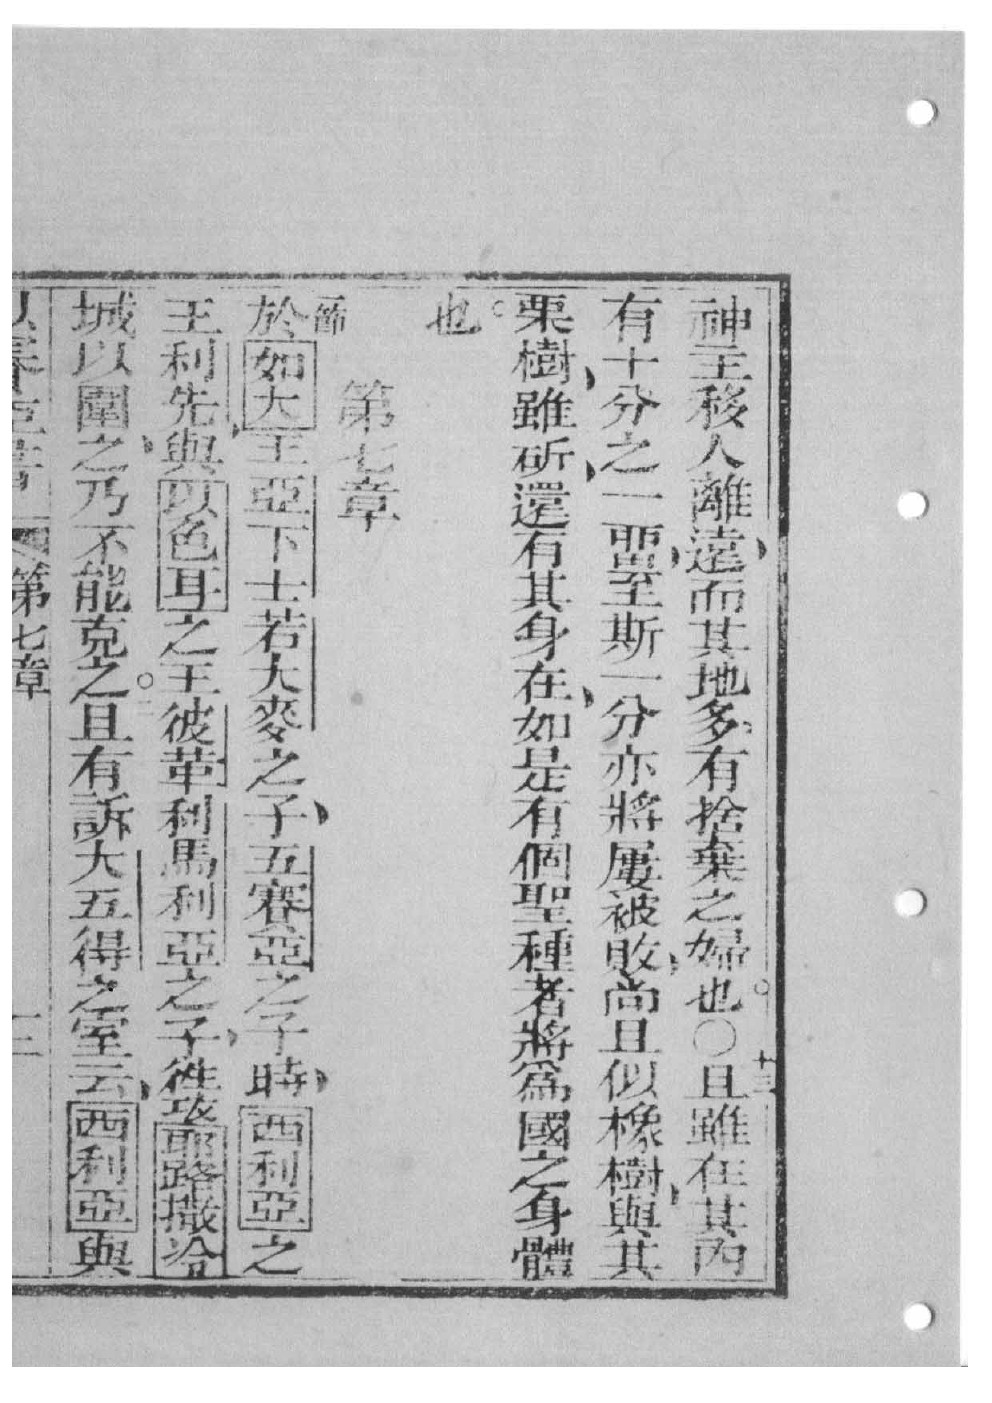 神主移人離遠而其地多有捨棄之婦也○且雖在其內
十三
有十分之一畱至斯一分亦將屢被敗尚且似橡樹與其
栗樹雖斫還有其身在如是有個聖種者將爲國之身體
也
第七章
一節
於如大王亞下士若大麥之子五賽亞之子時西利亞之
王利先與以色耳之王彼革利馬利亞之子徃攻耶路撒冷
城以圍之乃不能克之且有訴大五得之室云西利亞與
二
以賽亞書 第七章 十三